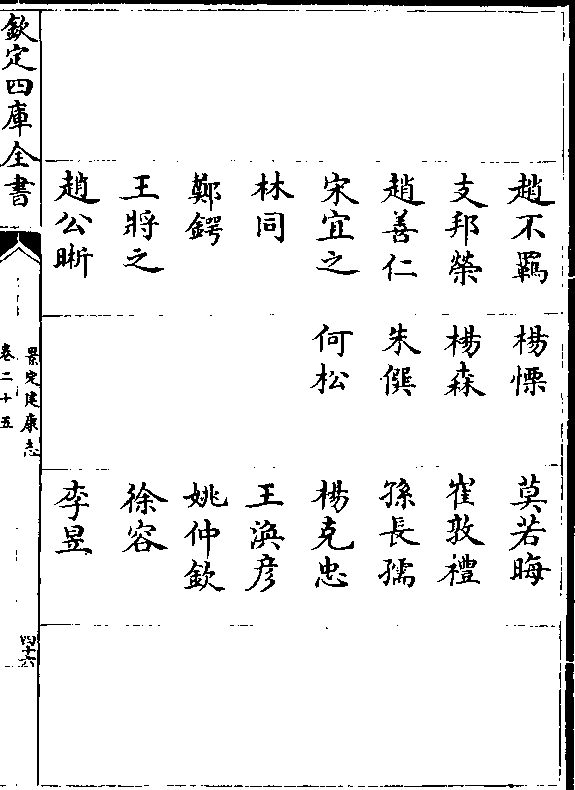 趙不羈 楊慄 莫若晦
支邦榮 楊森 崔敦禮
趙善仁 朱僎 孫長孺
宋宜之 何松 楊克忠
林同 王渙彦
鄭鍔 姚仲欽
王將之 徐容
趙公晰 李昱
欽定四庫全書
景定建康志
卷二十五
四十六